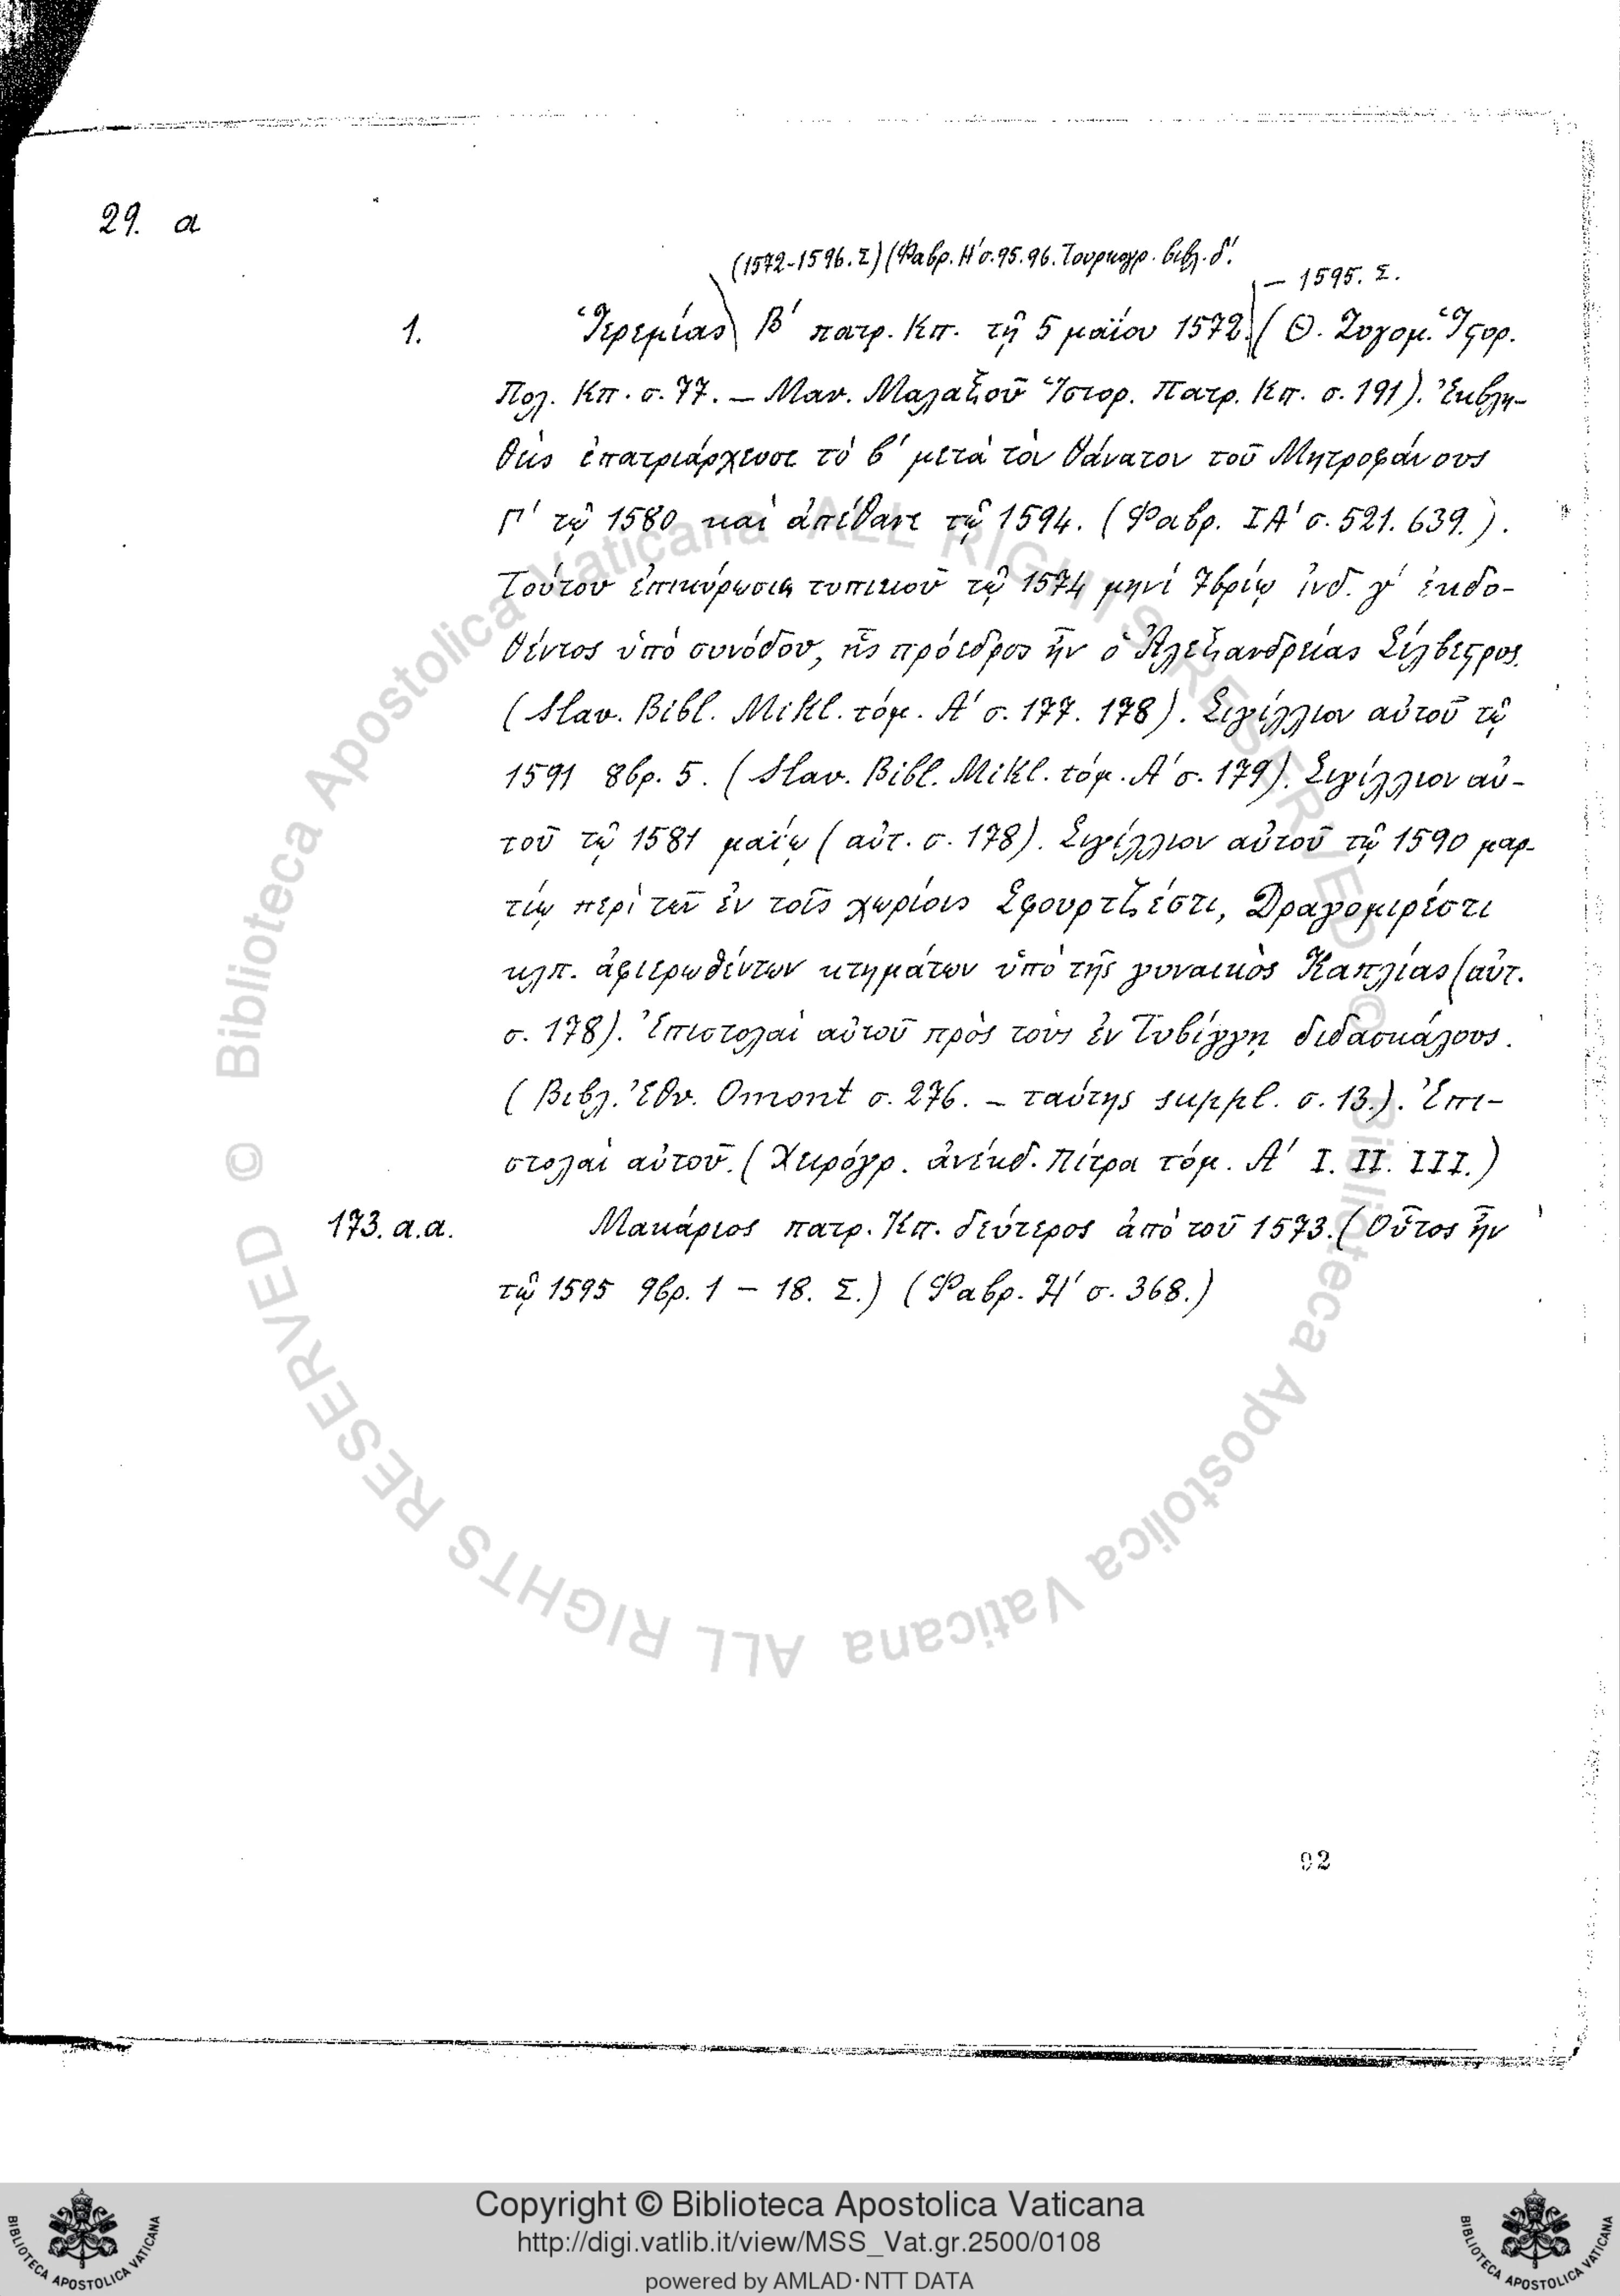 29. α
(1572-1596. Σ) (Φαβρ. Η΄ σ. 95. 96. Τουρκογρ. βιβλ. δ΄.
— 1595. Σ.
1. Ἱερεμίας Β΄ πατρ. Κπ. τῇ 5 μαΐου 1572. (Θ. Ζυγομ. Ἱστορ.
Πολ. Κπ. σ. 77. — Μαν. Μαλαξοῦ Ἱστορ. Πατρ. Κπ. σ. 191). Ἐκβλη-
θεὶς ἐπατριάρχευσε τὸ β΄ μετὰ τὸν θάνατον τοῦ Μητροφάνους
Γ΄ τῷ 1580 καὶ ἀπέθανε τῷ 1594. (Φαβρ. ΙΑ΄ σ. 521. 639.).
Τούτου ἐπικύρωσις τυπικοῦ τῷ 1574 μηνὶ 7βρίῳ ἰνδ. γ΄ ἐκδο-
θέντος ὑπὸ συνόδου, ἧς πρόεδρος ἦν ὁ Ἀλεξανδρείας Σίλβεστρος.
(Slav. Bibl. Mikl. τόμ. Α΄ σ. 177. 178). Σιγίλλιον αὐτοῦ τῷ
1591 8βρ. 5. (Slav. Bibl. Mikl. τόμ. Α΄ σ. 179). Σιγίλλιον αὐ-
τοῦ τῷ 1581 μαΐῳ (αὐτ. σ. 178). Σιγίλλιον αὐτοῦ τῷ 1590 μαρ-
τίῳ περὶ τῶν ἐν τοῖς χωρίοις Σφουρτζέστι, Δραγομιρέστι
κλπ. ἀφιερωθέντων κτημάτων ὑπὸ τῆς γυναικὸς Καπλίας (αὐτ.
σ. 178). Ἐπιστολαὶ αὐτοῦ πρὸς τοὺς ἐν Τυβίγγῃ διδασκάλους.
(Βιβλ. Ἐθν. Omont σ. 276. — ταύτης suppl. σ. 13.). Ἐπι-
στολαὶ αὐτοῦ. (Χειρόγρ. ἀνέκδ. Πίτρα τόμ. Α΄ I. II. III.)
173. α.α. Μακάριος πατρ. Κπ. δεύτερος ἀπὸ τοῦ 1573. (Οὗτος ἦν
τῷ 1595 9βρ. 1 — 18. Σ.) (Φαβρ. Η΄ σ. 368.)
92
© Biblioteca Apostolica Vaticana ALL RIGHTS RESERVED
© Biblioteca Apostolica Vaticana ALL RIGHTS RESERVED
Copyright © Biblioteca Apostolica Vaticana
http://digi.vatlib.it/view/MSS_Vat.gr.2500/0108
powered by AMLAD·NTT DATA
BIBLIOTECA APOSTOLICA VATICANA
BIBLIOTECA APOSTOLICA VATICANA